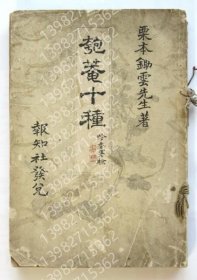 栗本鋤雲先生著
匏菴十種
報知社發兌
13982715362